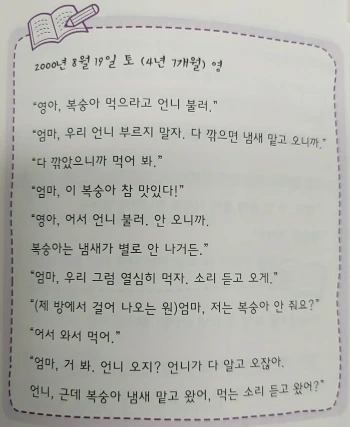 2000년 8월 19일 토 (4년 7개월) 영
“영아, 복숭아 먹으라고 언니 불러.”
“엄마, 우리 언니 부르지 말자. 다 깎으면 냄새 맡고 오니까.”
“다 깎았으니까 먹어 봐.”
“엄마, 이 복숭아 참 맛있다!”
“영아, 어서 언니 불러. 안 오니까.
복숭아는 냄새가 별로 안 나거든.”
“엄마, 우리 그럼 열심히 먹자. 소리 듣고 오게.”
“(제 방에서 걸어 나오는 원)엄마, 저는 복숭아 안 줘요?”
“어서 와서 먹어.”
“엄마, 거 봐. 언니 오지? 언니가 다 알고 오잖아.
언니, 근데 복숭아 냄새 맡고 왔어, 먹는 소리 듣고 왔어?”